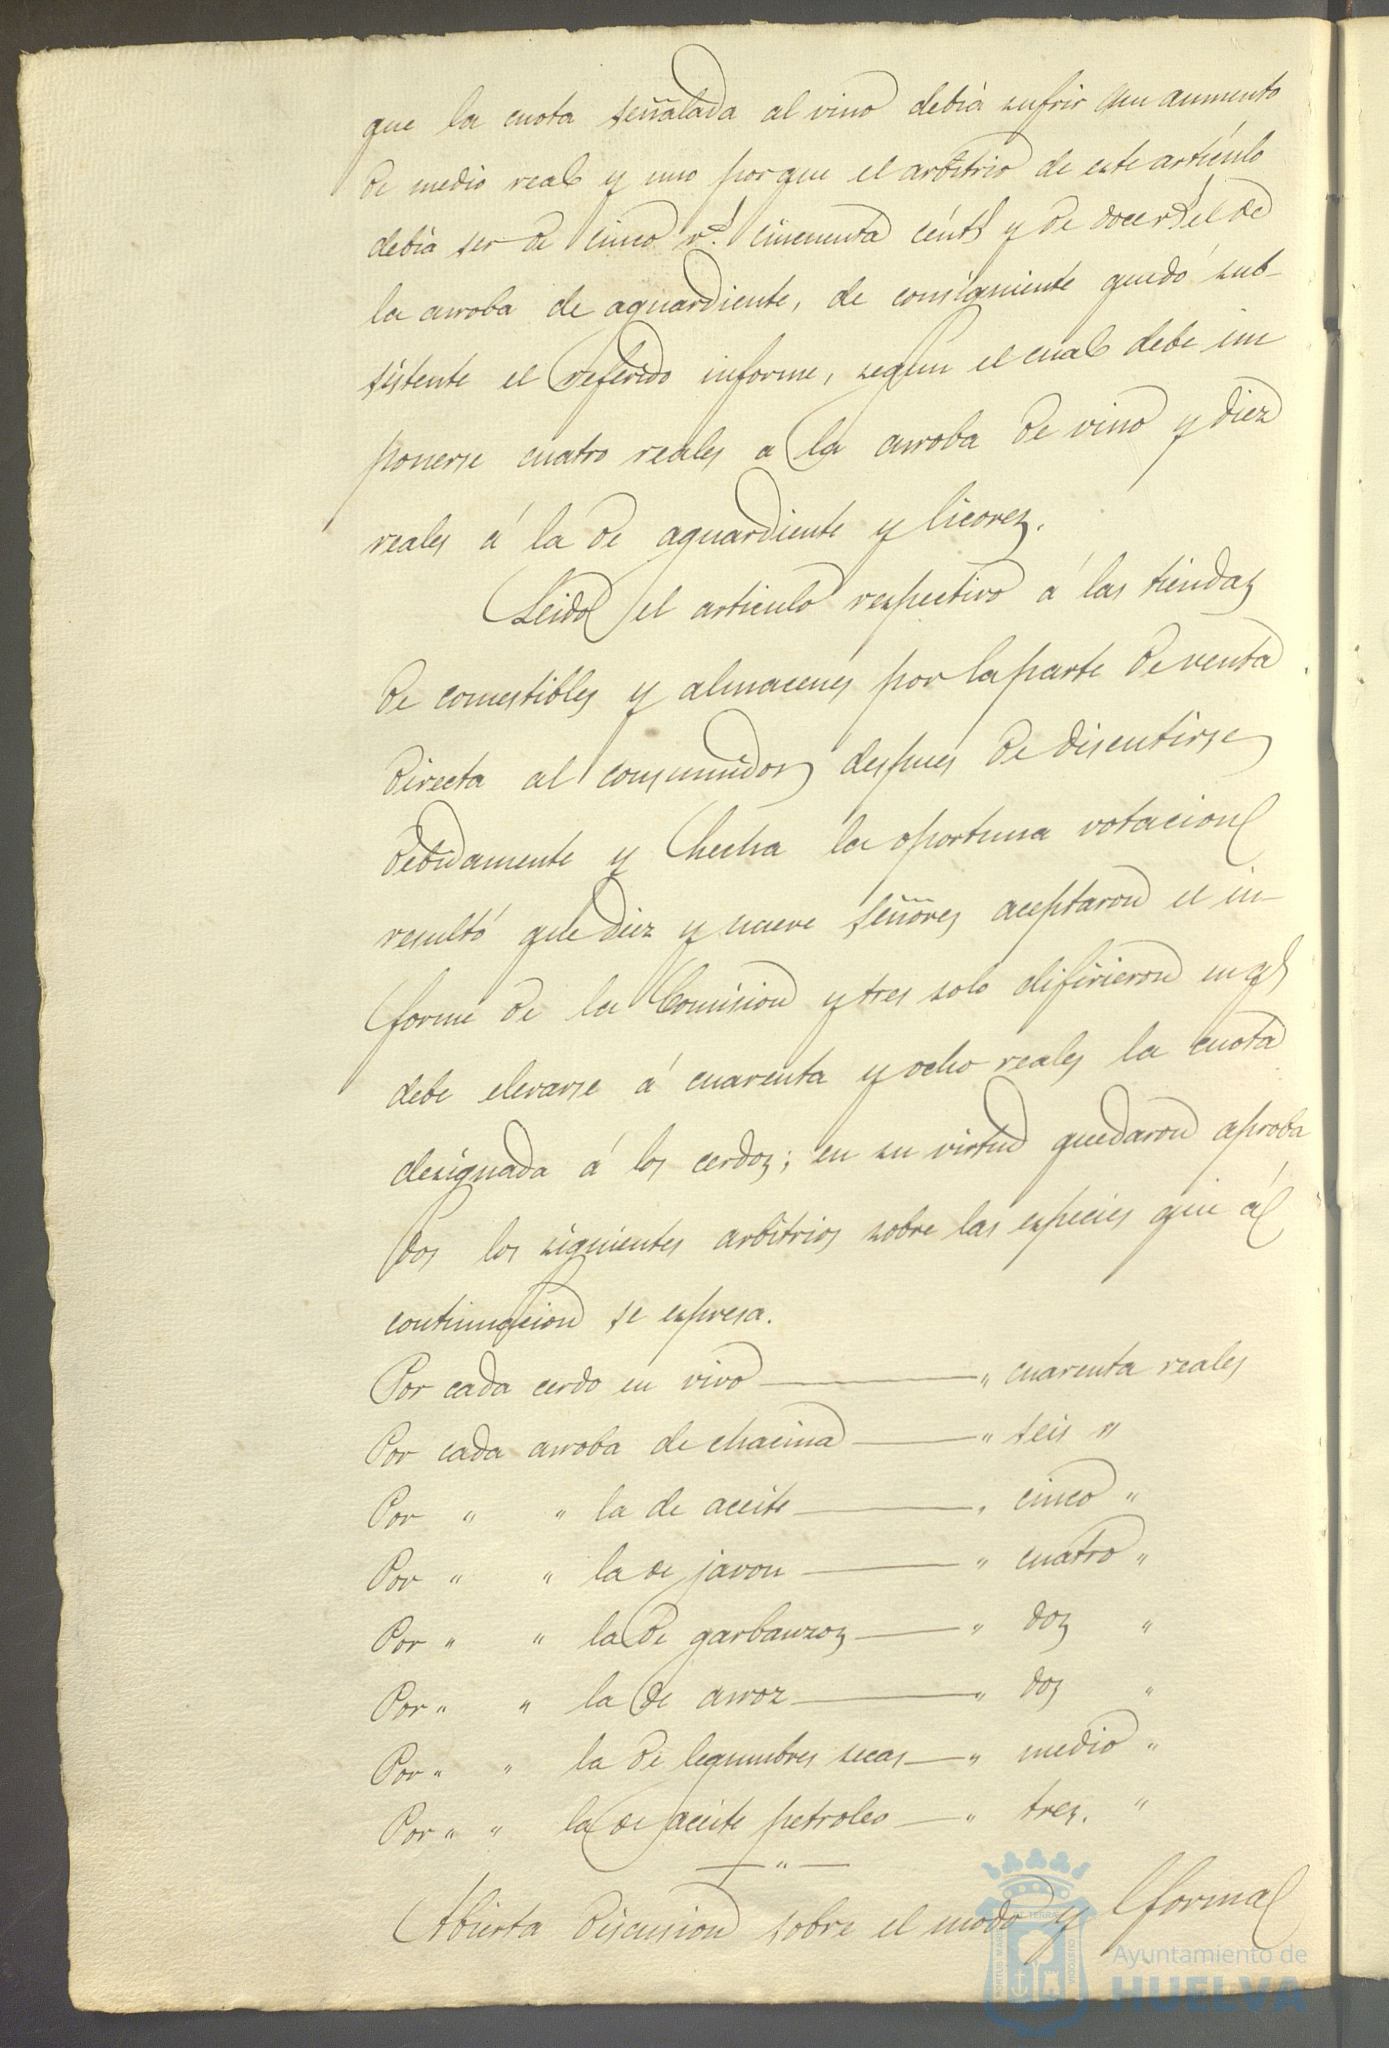 que la cuota señalada al vino debia sufrir un aumento
de medio real y uno porque el arbitrio de este artículo
debia ser de cinco rs. cincuenta cénts y de doce rs el de
la arroba de aguardiente, de consiguiente quedó sub-
sistente el referido informe, segun el cual debe im
ponerse cuatro reales a la arroba de vino y diez
reales á la de aguardiente y licores.
Leido el articulo respectivo á las tiendas
de comestibles y almacenes por la parte de venta
directa al consumidor despues de discutirse
debidamente y hecha la oportuna votacion
resultó que diez y nueve señores aceptaron el in-
forme de la Comision y tres solo difirieron en qe
debe elevarse á cuarenta y ocho reales la cuota
designada á los cerdos; en su virtud quedaron aproba
dos los siguientes arbitrios sobre las especies que á
continuacion se espresa.
Por cada cerdo en vivo — " cuarenta reales
Por cada arroba de chacina — " seis "
Por " " la de aceite — " cinco "
Por " " la de javon — " cuatro "
Por " " la de garbanzos — " dos "
Por " " la de arroz — " dos "
Por " " la de legumbres secas — " medio "
Por " " la de aceite petroleo — " tres. "
— " —
Abierta discusion sobre el modo y forma
PORTUS MARIS ET TERRAE CUSTODIA
Ayuntamiento de
HUELVA